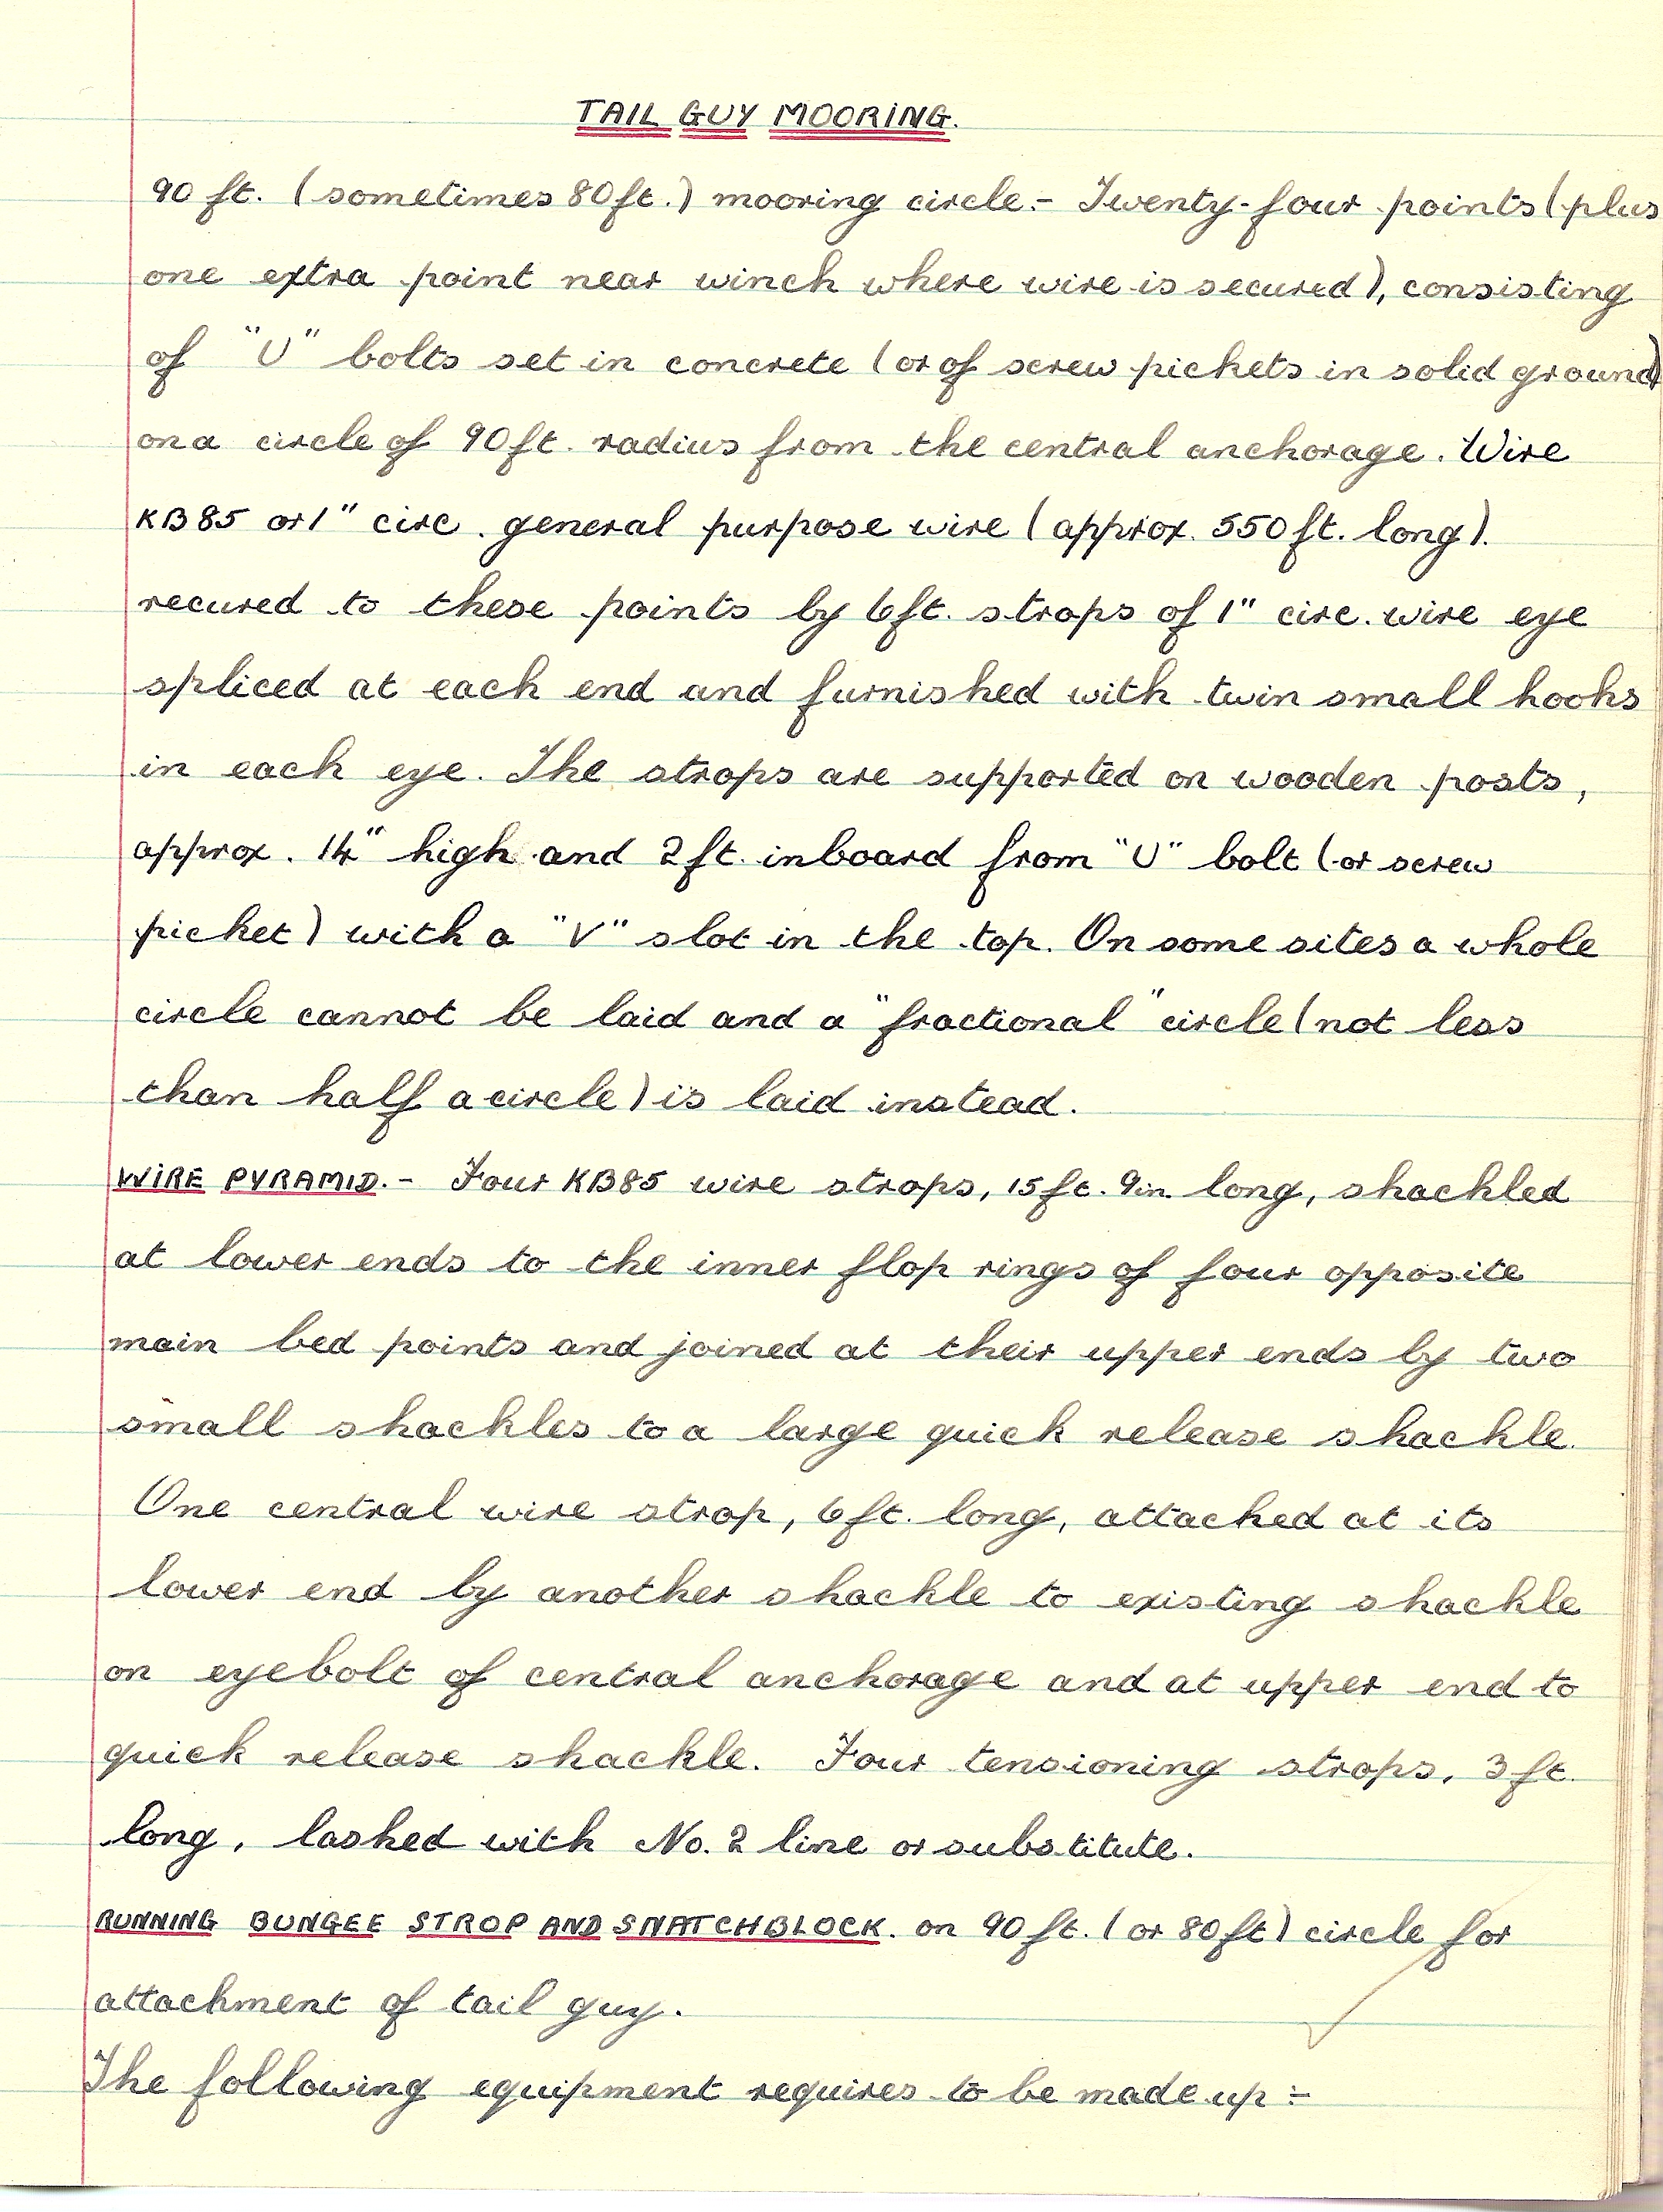 TAIL GUY MOORING.
90 ft. (sometimes 80 ft.) mooring circle:- Twenty-four points (plus
one extra point near winch where wire is secured), consisting
of "U" bolts set in concrete (or of screw pickets in solid ground)
on a circle of 90 ft. radius from the central anchorage. Wire
KB85 or 1" circ. general purpose wire (approx. 550 ft. long).
recured to these points by 6 ft. strops of 1" circ. wire eye
spliced at each end and furnished with twin small hooks
in each eye. The strops are supported on wooden posts,
approx. 14" high and 2 ft. inboard from "U" bolt (or screw
picket) with a "V" slot in the top. On some sites a whole
circle cannot be laid and a "fractional" circle (not less
than half a circle) is laid instead.
WIRE PYRAMID.- Four KB85 wire strops, 15 ft. 9in. long, shackled
at lower ends to the inner flop rings of four opposite
main bed points and joined at their upper ends by two
small shackles to a large quick release shackle.
One central wire strop, 6 ft. long, attached at its
lower end by another shackle to existing shackle
on eyebolt of central anchorage and at upper end to
quick release shackle. Four tensioning strops, 3 ft.
long, lashed with No. 2 line or substitute.
RUNNING BUNGEE STROP AND SNATCHBLOCK. on 90 ft. (or 80 ft) circle for
attachment of tail guy.
The following equipment requires to be made up:-